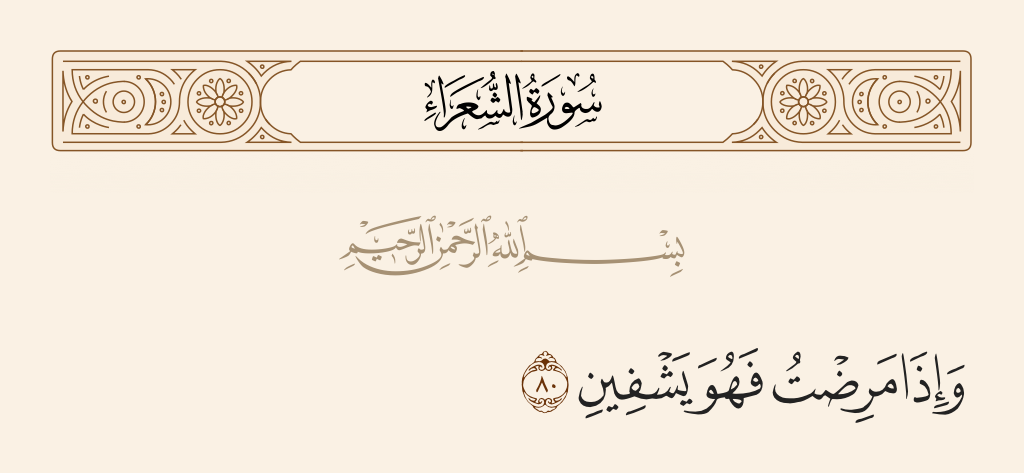 سُورَةُ الشُّعَرَاءِ
بِسْمِ ٱللَّهِ ٱلرَّحْمَٰنِ ٱلرَّحِيمِ
وَإِذَا مَرِضْتُ فَهُوَ يَشْفِينِ ٨٠